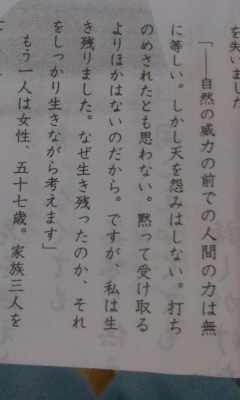 を失いました
「――自然の威力の前での人間の力は無
に等しい。しかし天を怨みはしない。打ち
のめされたとも思わない。黙って受け取る
よりほかはないのだから。ですが、私は生
き残りました。なぜ生き残ったのか、それ
をしっかり生きながら考えます」
もう一人は女性、五十七歳。家族三人を